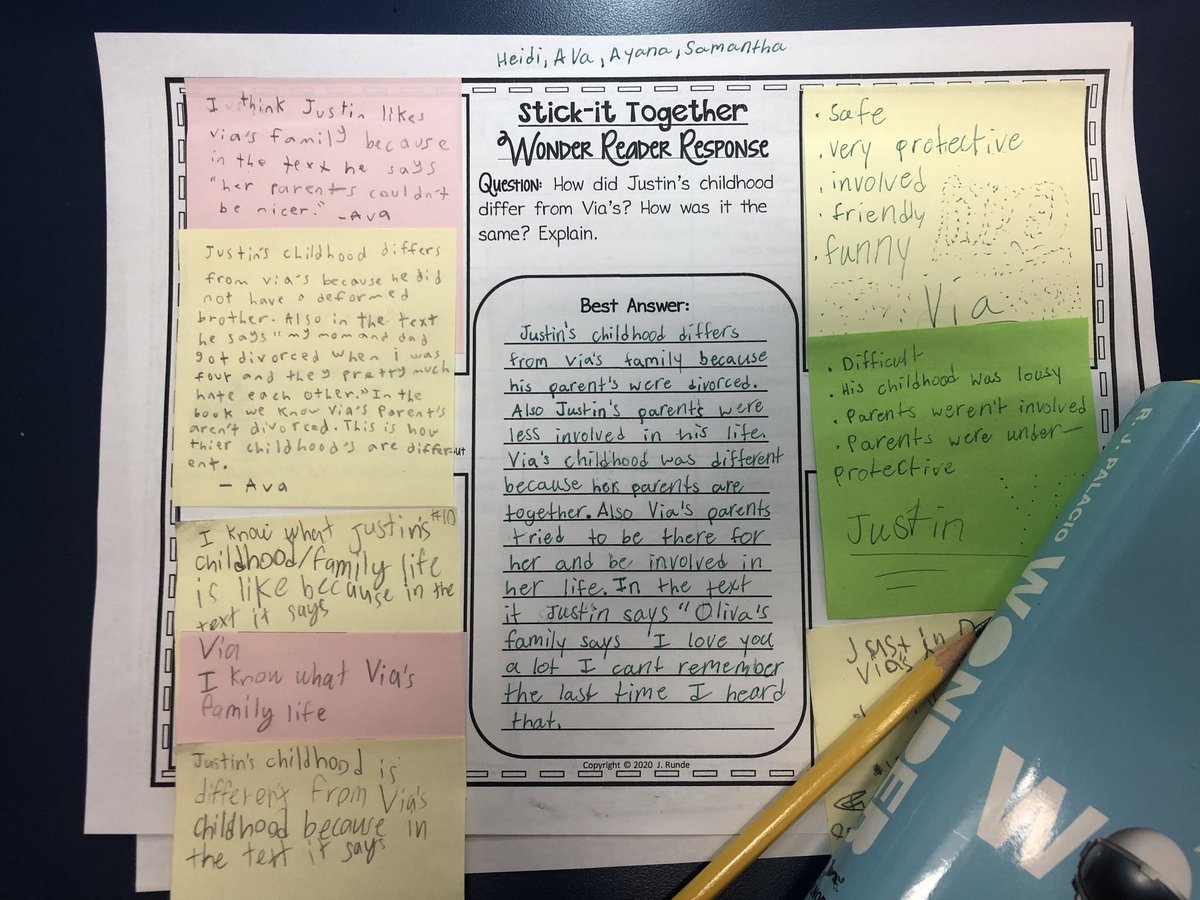 Heidi, Ava, Ayana, Samantha
I think Justin likes
via's family because
in the text he says
"her parents couldn't
be nicer." -Ava
Justin's childhood differs
from via's because he did
not have a deformed
brother. Also in the text
he says "my mom and dad
got divorced when i was
four and they pretty much
hate each other." In the
book we know Via's Parent's
aren't divorced. This is how
thier childhood's are differ-
ent.
- Ava
#10
I know what Justin's
childhood/family life
is like because in the
text it says
Via
I know what Via's
family life
Justin's childhood is
different from Via's
childhood because in
the text it says
Stick-it Together
Wonder Reader Response
Question: How did Justin's childhood
differ from Via's? How was it the
same? Explain.
Best Answer:
Justin's childhood differs
from Via's family because
his parent's were divorced.
Also Justin's parents were
less involved in his life.
Via's childhood was different
because her parents are
together. Also Via's parents
tried to be there for
her and be involved in
her life. In the text
it Justin says "Oliva's
family says I love you
a lot I cant remember
the last time I heard
that.
Copyright © 2020 J. Runde
• Safe
• very protective
• involved
• friendly
• funny
Via
• Difficult
• His childhood was lousy
• Parents weren't involved
• Parents were under-
protective
Justin
Via's
R. J. PALACIO WONDER
WO